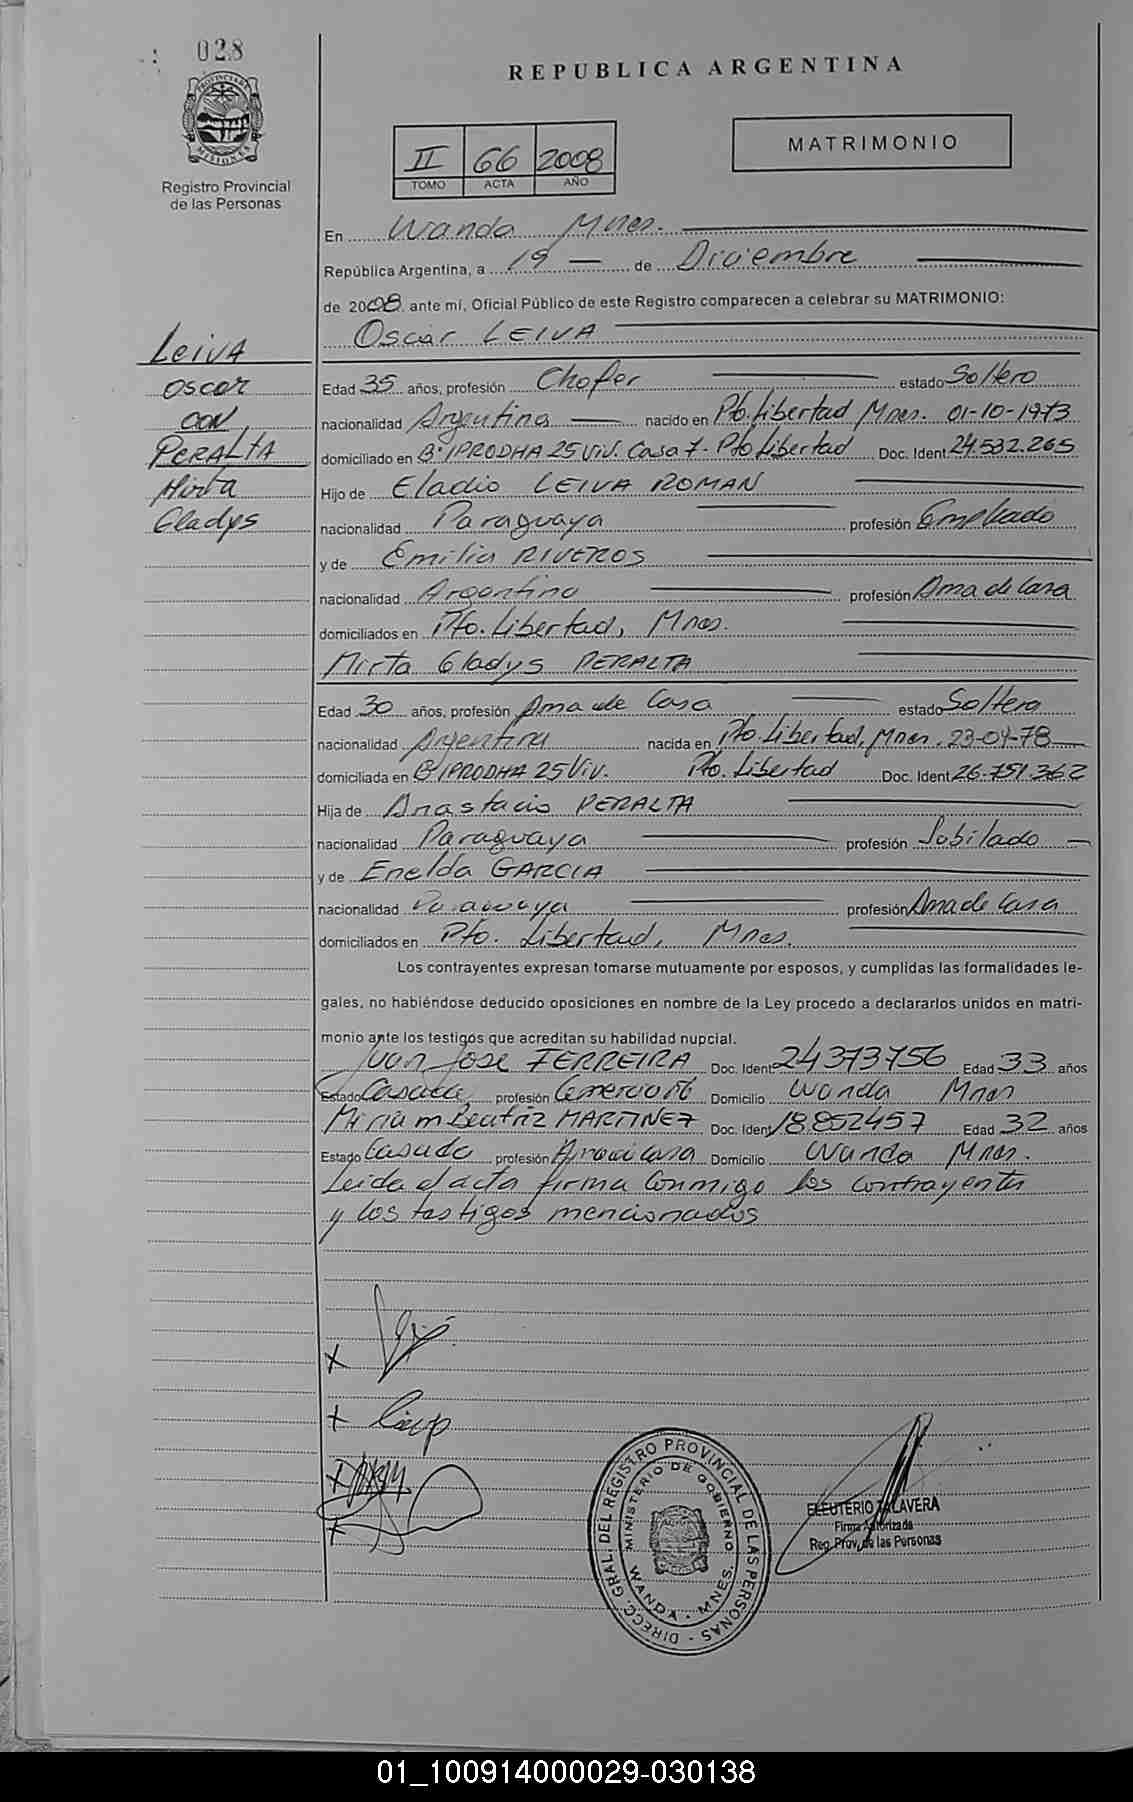 028
PROVINCIA DE MISIONES
Registro Provincial
de las Personas
REPUBLICA ARGENTINA
II 66 2008
TOMO ACTA AÑO
MATRIMONIO
En Wanda Mnes.
República Argentina, a 19 — de Diciembre
de 2008 ante mí, Oficial Público de este Registro comparecen a celebrar su MATRIMONIO:
Oscar LEIVA
LEIVA
Oscar
CON
PERALTA
Mirta
Gladys
Edad 35 años, profesión Chofer estado Soltero
nacionalidad Argentina nacido en Pto. Libertad Mnes. 01-10-1973
domiciliado en B° IPRODHA 25 Viv. Casa 7 - Pto Libertad Doc. Ident 24.532.265
Hijo de Eladio LEIVA ROMAN
nacionalidad Paraguaya profesión Empleado
y de Emilia RIVEROS
nacionalidad Argentina profesión Ama de Casa
domiciliados en Pto. Libertad, Mnes.
Mirta Gladys PERALTA
Edad 30 años, profesión Ama de Casa estado Soltera
nacionalidad Argentina nacida en Pto. Libertad, Mnes. 23-04-78
domiciliada en B° IPRODHA 25 Viv. Pto. Libertad Doc. Ident 26.751.362
Hija de Anastacio PERALTA
nacionalidad Paraguaya profesión Jubilado —
y de Enelda GARCIA
nacionalidad Paraguaya profesión Ama de Casa
domiciliados en Pto. Libertad, Mnes.
Los contrayentes expresan tomarse mutuamente por esposos, y cumplidas las formalidades le-
gales, no habiéndose deducido oposiciones en nombre de la Ley procedo a declararlos unidos en matri-
monio ante los testigos que acreditan su habilidad nupcial.
Juan Jose FERREIRA Doc. Ident 24373756 Edad 33 años
Estado Casado profesión Domicilio Wanda Mnes
Miriam Beatriz MARTINEZ Doc. Ident 18852457 Edad 32 años
Estado Casada profesión Ama de Casa Domicilio Wanda Mnes.
Leida el acta firma conmigo los contrayentes
y los testigos mencionados
DIRECC. GRAL. DEL REGISTRO PROVINCIAL DE LAS PERSONAS
MINISTERIO DE GOBIERNO
WANDA - MNES.
ELEUTERIO TALAVERA
Firma Autorizada
Reg. Prov. de las Personas
01_100914000029-030138